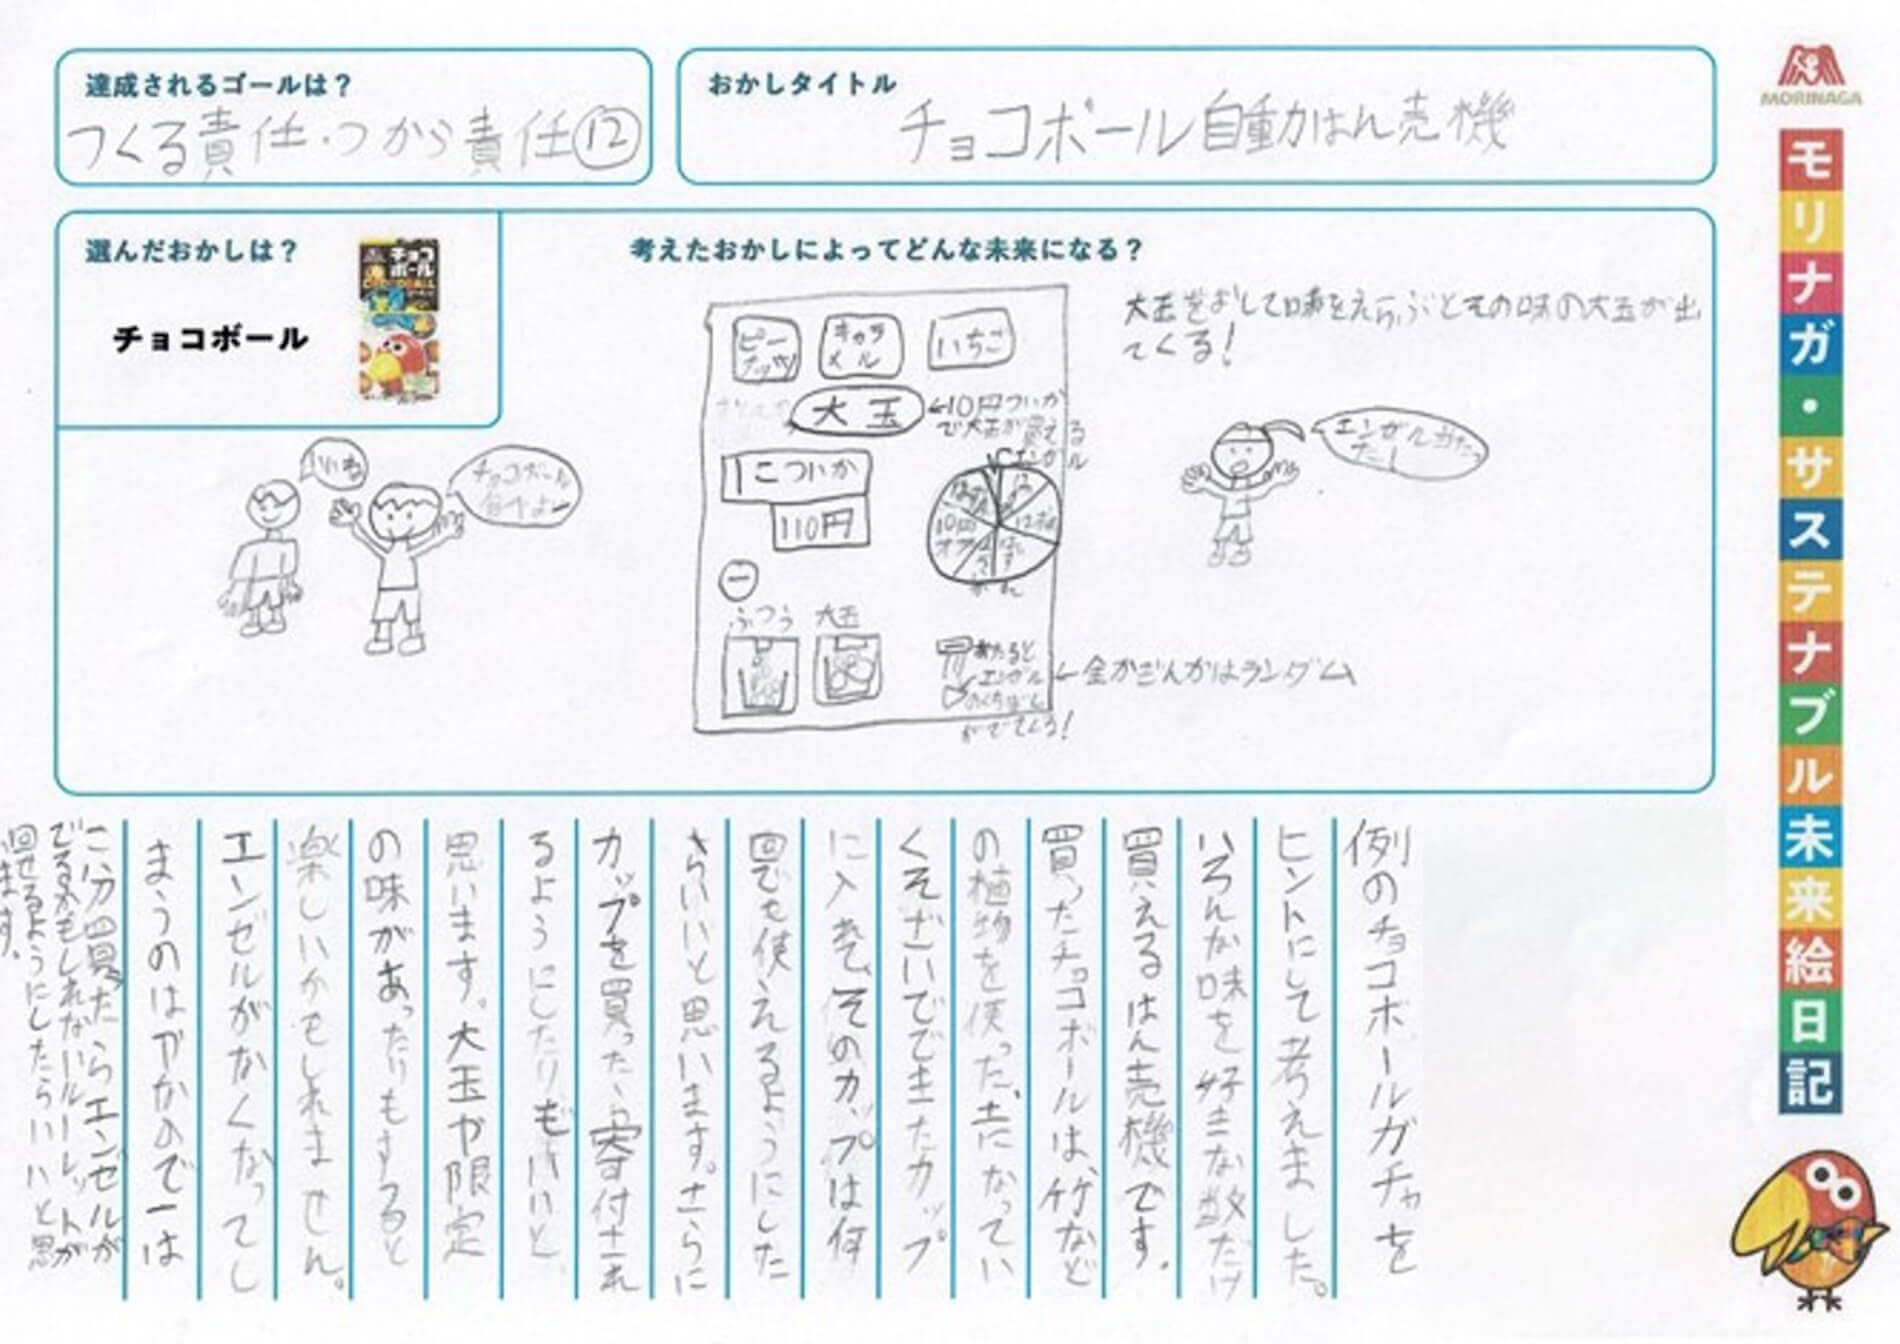 達成されるゴールは？
つくる責任・つかう責任⑫
おかしタイトル
チョコボール自動はん売機
MORINAGA
モリナガ・サステナブル未来絵日記
選んだおかしは？
チョコボール
チョコ
ボール
考えたおかしによってどんな未来になる？
大玉をおして味をえらぶとその味の大玉が出
てくる！
ピー
ナッツ
キャラ
メル
いちご
大玉
←10円ついか
で大玉が買える
1こついか
110円
ふつう
大玉
10円
オフ
はずれ
あたると
エンゼル
のくちばし
がでてくる！
←金かぎんかはランダム
いいね
チョコボール
食べよー
エンゼル当たっ
たー！
例のチョコボールガチャを
ヒントにして考えました。
いろんな味を好きな数だけ
買えるはん売機です。
買ったチョコボールは、竹など
の植物を使った、土になってい
くそざいでできたカップ
に入れて、そのカップは何
回でも使えるようにした
らいいと思います。さらに
カップを買ったら寄付され
るようにしたりもいいと
思います。大玉や限定
の味があったりもすると
楽しいかもしれません。
エンゼルがなくなってし
まうのはやなので一は
こ分買ったらエンゼルが
でるかもしれないルーレットが
回せるようにしたらいいと思
います。